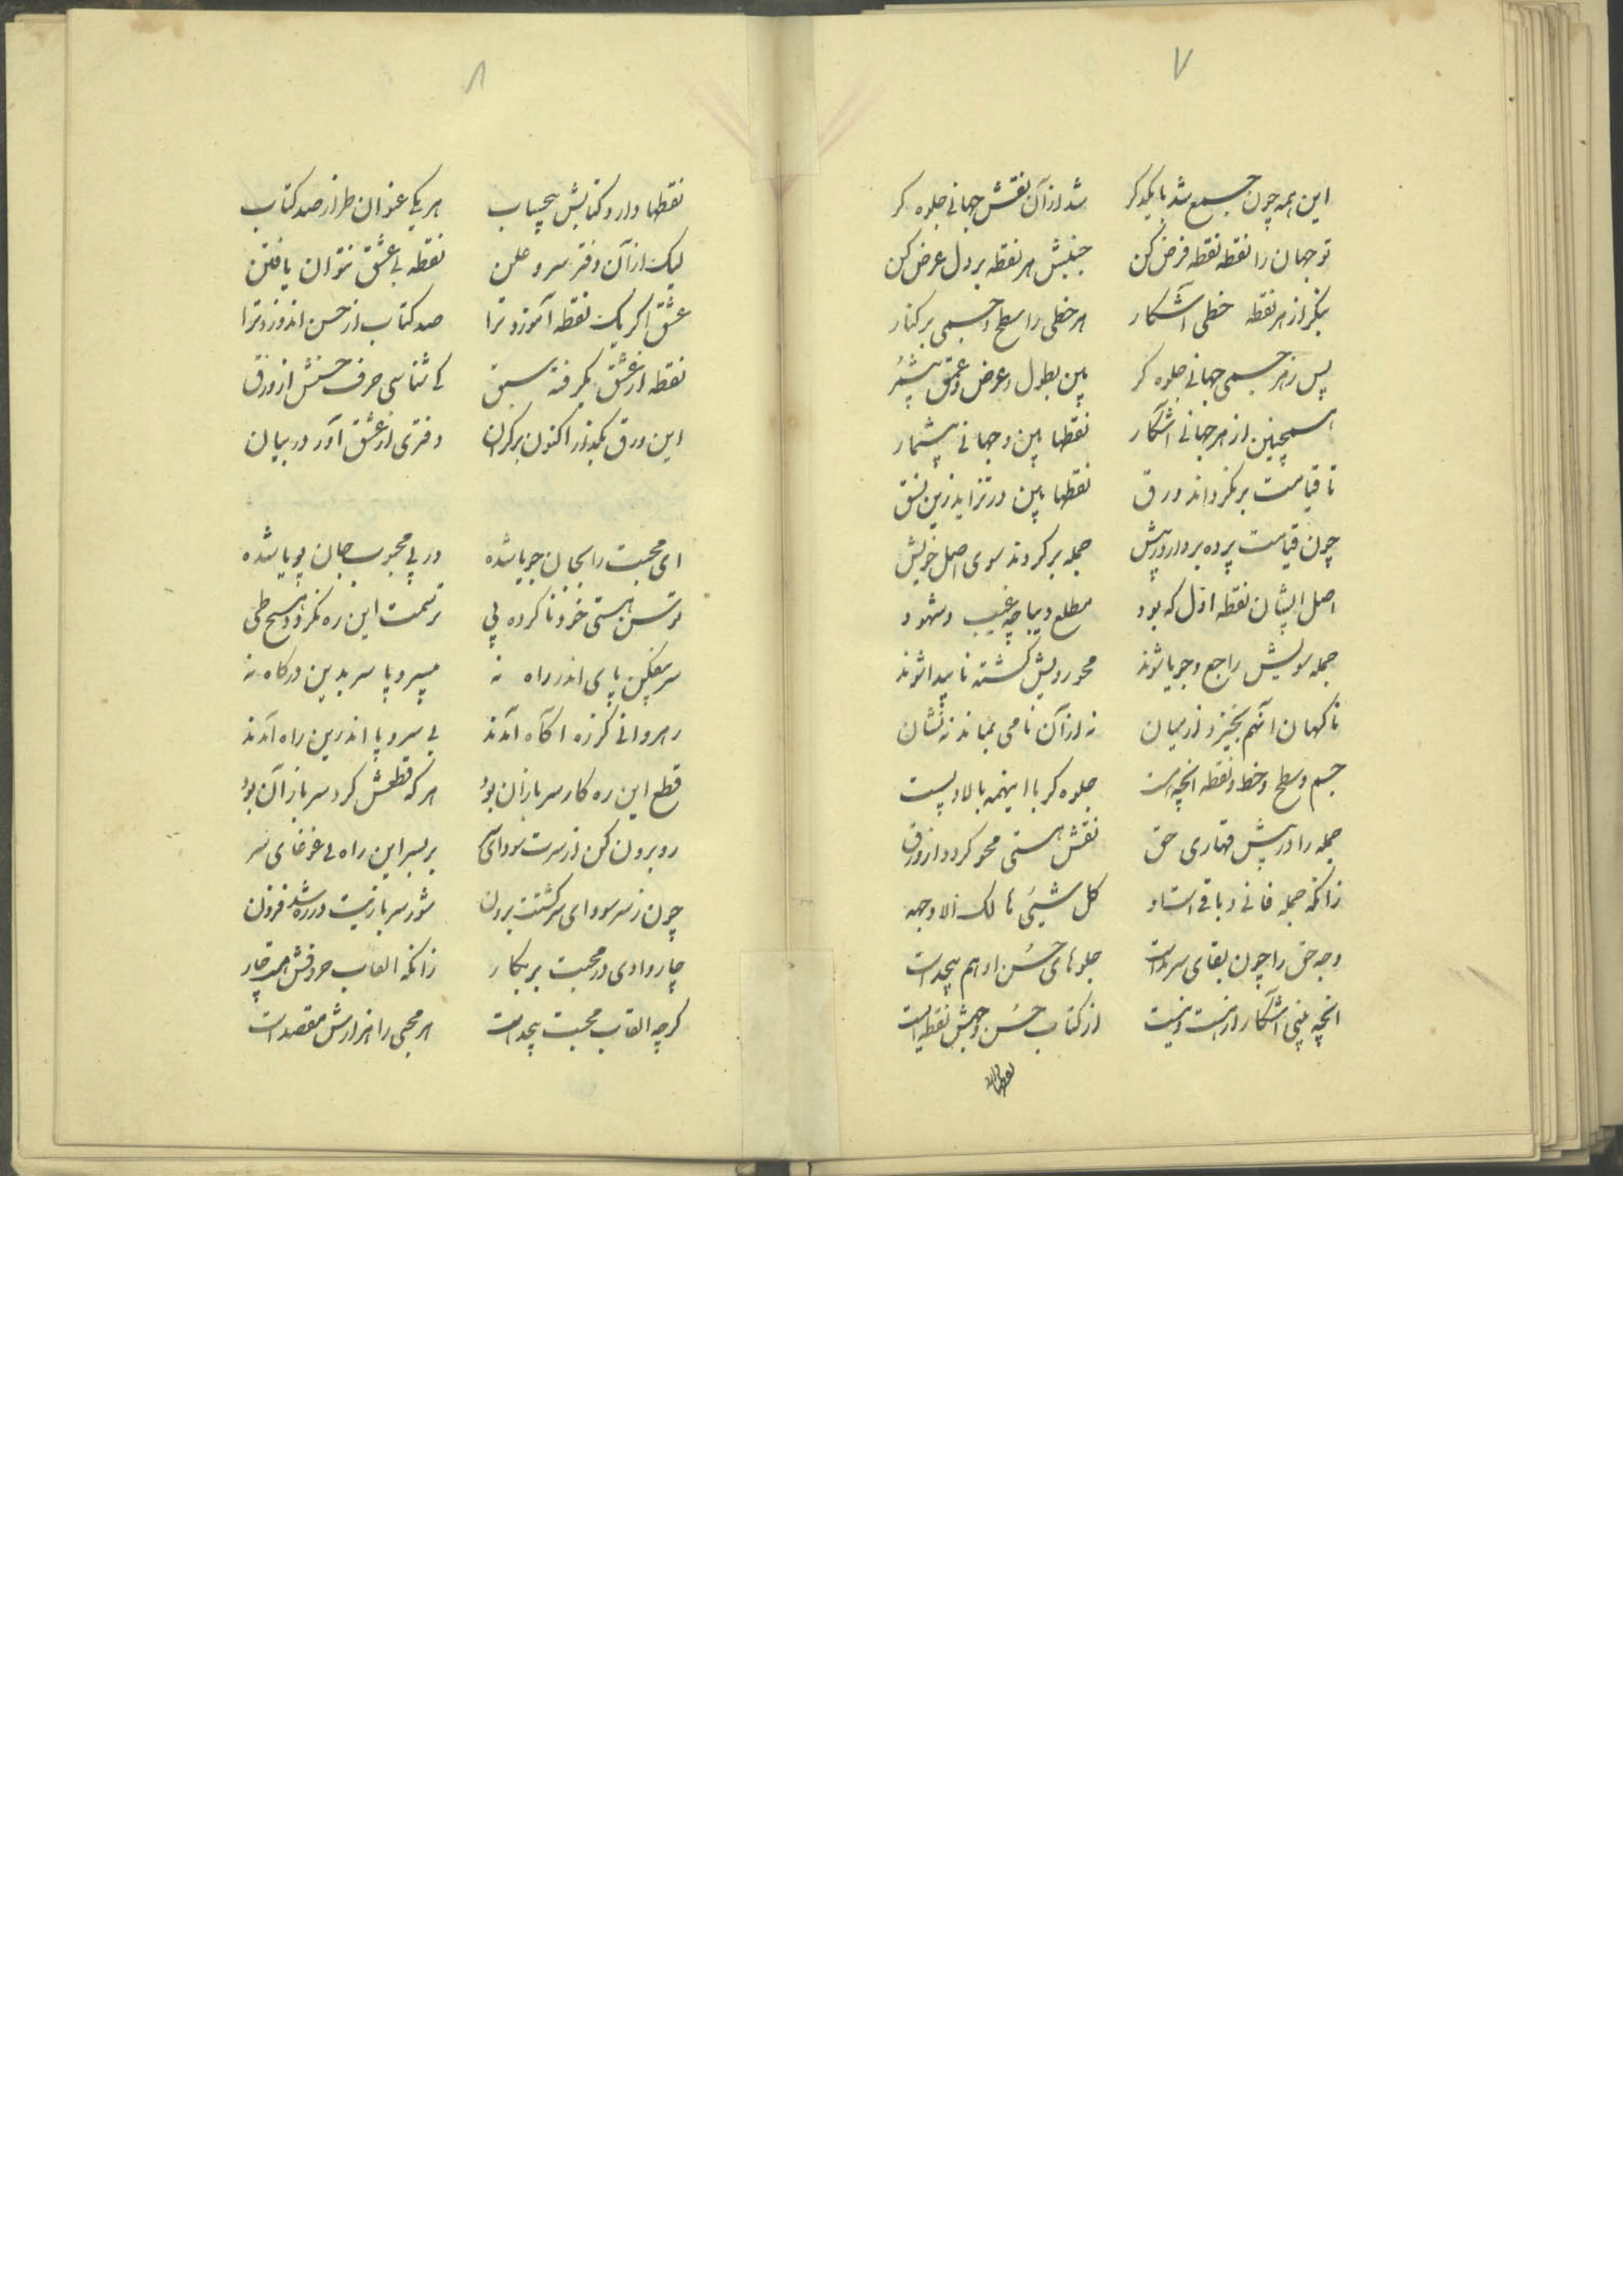 ۷
این همه چون جمع شد با یکدکر شد از آن نقش جهانی جلوه کر
تو جهان را نقطه نقطه فرض کن جنبش هر نقطه بر دل عرض کن
بنکر از هر نقطه خطی آشکار هر خطی را سطح و جسمی بر کنار
پس ز هر جسمی جهانی جلوه کر بین بطول و عرض و عمق بیشمر
همچنین از هر جهانی آشکار نقطها بین و جهانی بیشمار
تا قیامت بر نکرداند ورق نقطها بین در تزاید زین نسق
چون قیامت پرده بردارد ز پیش جمله بر کردند سوی اصل خویش
اصل ایشان نقطه اول که بود مطلع دیباچه غیب و شهود
جمله سویش راجع و جویا شوند محو رویش کشته ناپیدا شوند
ناکهان آنهم بخیزد از میان نه از آن نامی بماند نه نشان
جسم و سطح و خط و نقطه انچه هست جلوه کر با اینهمه بالا و پست
جمله را در پیش قهاری حق نقش هستی محو کردد از ورق
زانکه جمله فانی و باقی است او کل شیئی هالک الا وجهه
وجه حق را چون بقای سرمد است جلوهای حسن او هم بیحد است
انچه بینی آشکار از هست و نیست از کتاب حسن وجهش نقطه ایست
نقطها دارد
۸
نقطها دارد کتابش بیحساب هر یکی عنوان طراز صد کتاب
لیک از آن دفتر سر و علن نقطه بی عشق نتوان یافتن
عشق اکر یک نقطه آموزد ترا صد کتاب از حسن اندوزد ترا
نقطه از عشق نکرفته سبق کی شناسی حرف حسنش از ورق
این ورق بکذار اکنون بر کران دفتری از عشق آور در بیان
ای محبت را بجان جویا شده در پی محبوب جان پویا شده
توسن هستی خود نا کرده پی نرسمت این ره نکردد هیچ طی
سر بیفکن پای اندر راه نه بی سر و پا سر بدین درکاه نه
رهروانی کز ره آکاه آمدند بی سر و پا اندرین راه آمدند
قطع این ره کار سربازان بود هر که قطعش کرد سرباز آن بود
رو برون کن از سرت سودای سر بر سر این راه بی غوغای سر
چون ز سر سودای سر کشتت برون شور سربازیت در ره شد فزون
چار وادی در محبت بر بکار زانکه القاب حروفش هست چار
کرچه القاب محبت بیحد است هر محبی را هزارش مقصد است